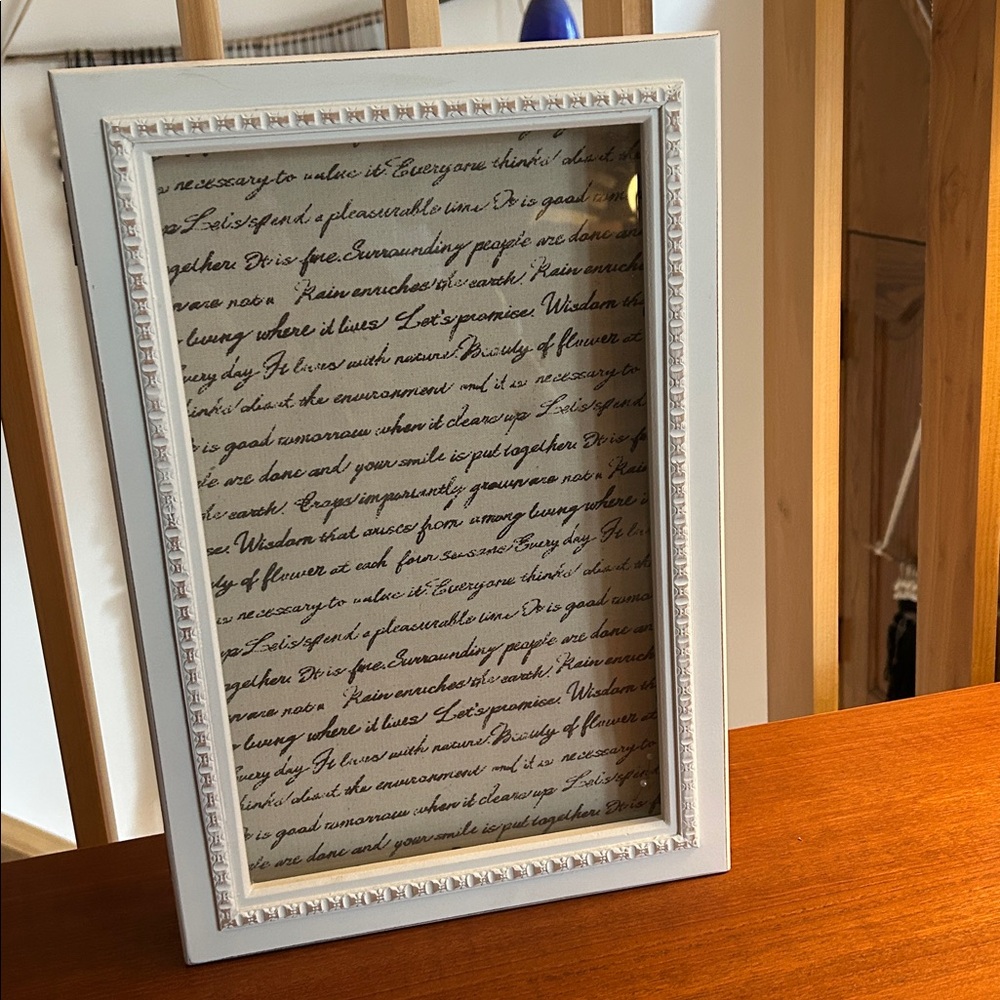 necessary to value it. Everyone thinks about the
up Let's spend a pleasurable time It is good tom
gether. It is fine. Surrounding people are done an
n are not a Rain enriches the earth. Rain enriche
living where it lives Let's promise. Wisdom th
very day It lives with nature. Beauty of flower at
inks about the environment and it is necessary to
is good tomorrow when it clears up Let's spend
le are done and your smile is put together. It is fi
he earth. Crops importantly grown are not a Rain
se. Wisdom that arises from among living where i
ty of flower at each four seasons Every day It li
necessary to value it. Everyone thinks about th
up Let's spend a pleasurable time It is good tomo
ogether. It is fine. Surrounding people are done an
n are not a Rain enriches the earth. Rain enrich
living where it lives Let's promise. Wisdom th
very day It lives with nature. Beauty of flower at
hinks about the environment and it is necessary to
is good tomorrow when it clears up Let's spend
le are done and your smile is put together. It is f